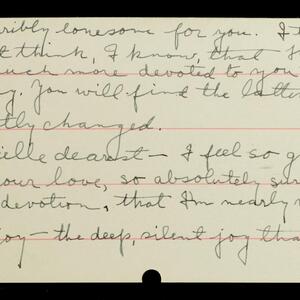 ribly lonesome for you. I t
t think, I know, that I
uch more devoted to you
y. You will find the latter
tly changed.
elle dearest — I feel so g
our love, so absolutely sur
devotion, that I'm nearly
joy — the deep, silent joy tha